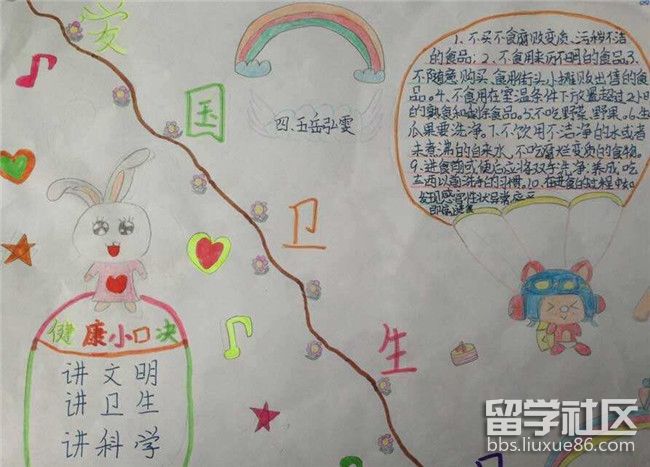 爱
国
卫
生
四、五岳弘雯
1、不买不食腐败变质、污秽不洁
的食品;2、不食用来历不明的食品3、
不随意购买、食用街头小摊贩出售的食
品。4、不食用在室温条件下放置超过2小时
的熟食和剩余食品。5、不吃野菜、野果。6、生
瓜果要洗净。7、不饮用不洁净的水或者
未煮沸的自来水,不吃腐烂变质的食物。
9、进食前或便后应将双手洗净,养成吃
东西以前洗手的习惯。10、在进食的过程中如
发现感官性状异常,应立
即停止进食
健康小口决
讲文明
讲卫生
讲科学
留学社区
bbs.liuxue86.com